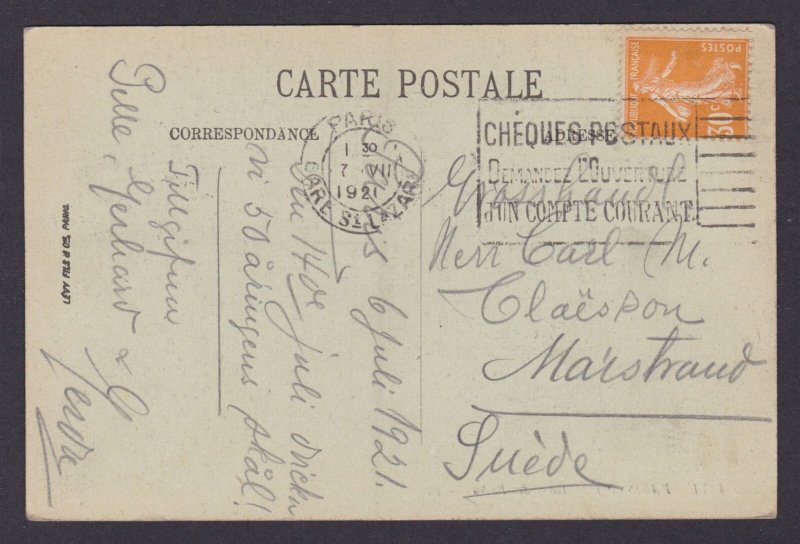 CARTE POSTALE
CORRESPONDANCE
ADRESSE
PARIS
GARE ST LAZARE
1 30
7 VII
1921
CHÈQUES POSTAUX
DEMANDEZ L'OUVERTURE
d'UN COMPTE COURANT
POSTES
FRANÇAISE
30c
Grosshandl.
Herr Carl M.
Claëson
Marstrand
Suède
Paris 6 Juli 1921.
Den 14de juli dricka
vi 50 åringens skål!
Tillgifna
Pelle, Gerhard &
Gerda
LÉVY FILS & Cie, PARIS